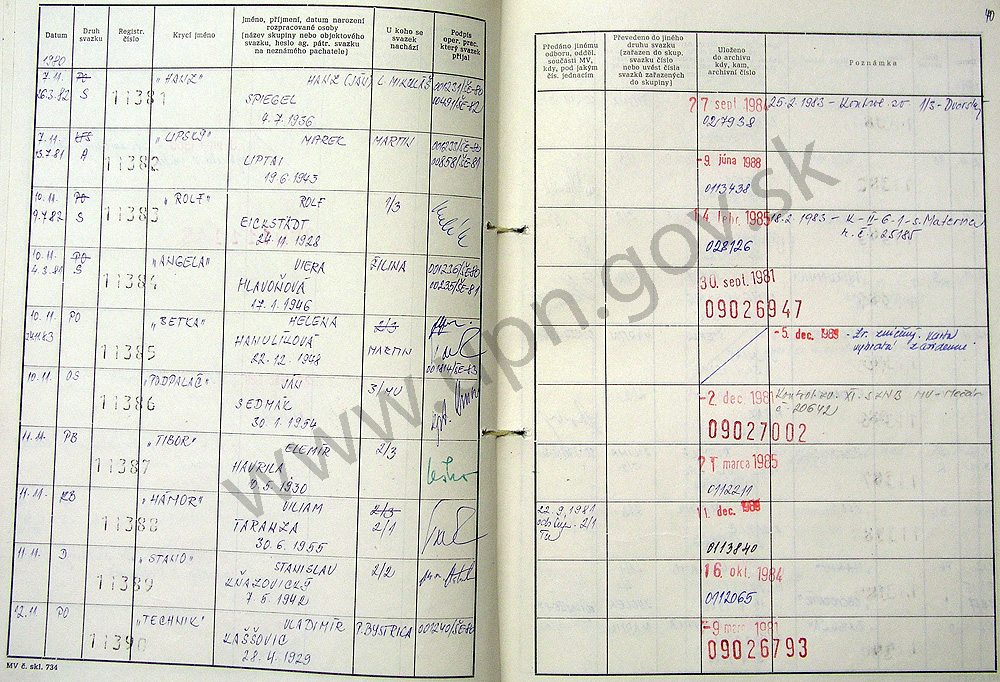 40
Datum
Druh svazku
Registr. číslo
Krycí jméno
Jméno, příjmení, datum narození rozpracované osoby (název skupiny nebo objektového svazku, heslo ag. pátr. svazku na neznámého pachatele)
U koho se svazek nachází
Podpis oper. prac. který svazek přijal
Předáno jinému odboru, odděl. součásti MV, kdy, pod jakým čís. jednacím
Převedeno do jiného druhu svazku (zařazen do skup. svazku číslo nebo uvést čísla svazků zařazených do skupiny)
Uloženo do archivu kdy, kam, archivní číslo
Poznámka
1980
7.11. PO "HANZ" HANZ (JÁN) L. MIKULÁŠ 001231/ŠE-80
26.3.82 S 11381 SPIEGEL 00491/ŠE-82
9.7.1936
27 sept. 1984 25.2.1983 - Kontrol zo 1/3 - Dvorský
027938
7.11. "LIPSKÝ" MAREK MARTIN 001233/ŠE-80
A 11382 LIPTAI 00858/ŠE-81
19.6.1943
-9. júna 1988
0113438
10.11. PO "ROLF" ROLF 1/3
9.7.82 S 11383 EICKSTÄDT
24.11.1928
14 febr. 1985 18.2.1983 - K-II-6-1-s. Materna
028126 k. č. 25185
10.11. PO "ANGELA" VIERA ŽILINA 001236/ŠE-80
4.3.81 S 11384 HLAVOŇOVÁ 00235/ŠE-81
17.1.1946
30. sept. 1981
09026947
10.11. PO "BETKA" HELENA 2/3
11385 HANULÍKOVÁ MARTIN
22.12.1948
-5. dec. 1989 - Zr. zničený. Karta
vybratá
10.11. OS "PODPALAČ" JÁN 3/MU
11386 SEDMÁK
30.1.1954
-2. dec. 1981
09027002 č - 20642
11.11. PB "TIBOR" ELEMÍR 2/3
11387 HAVRILA Leško
9.5.1930
21 marca 1985
0112211
11.11. KB "HÁMOR" VILIAM 2/3
11388 TARANZA 2/1
30.6.1955
22.9.1981 11. dec. 1989
odstúp. 2/1
0113840
11.11. D "STANO" STANISLAV 2/2
11389 KŇAZOVICKÝ
7.5.1942
16. okt. 1984
0112065
12.11. PO "TECHNIK" VLADIMÍR P. BYSTRICA 001240/ŠE-80
11390 LAŠŠOVIC
28.4.1929
-9 marca 1981
09026793
MV č. skl. 734
www.upn.gov.sk